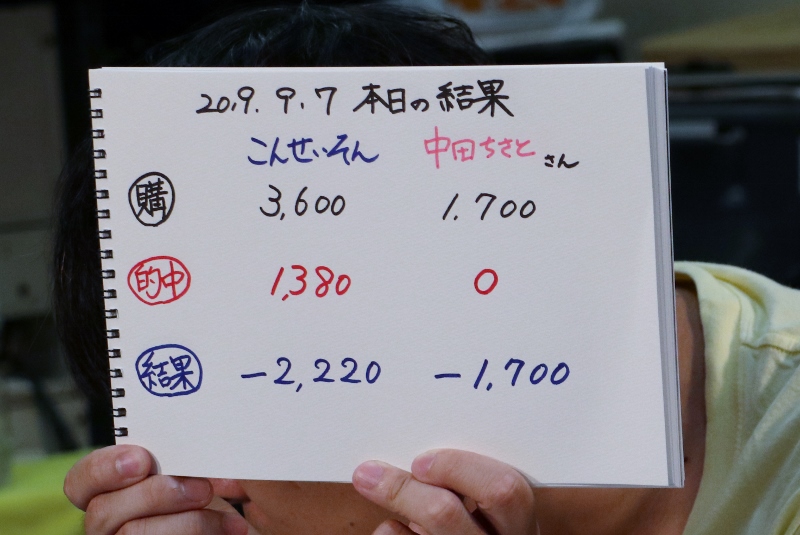 2019.9.7 本日の結果
こんせいそん 中田ちさとさん
購 3,600 1.700
的中 1,380 0
結果 -2,220 -1,700